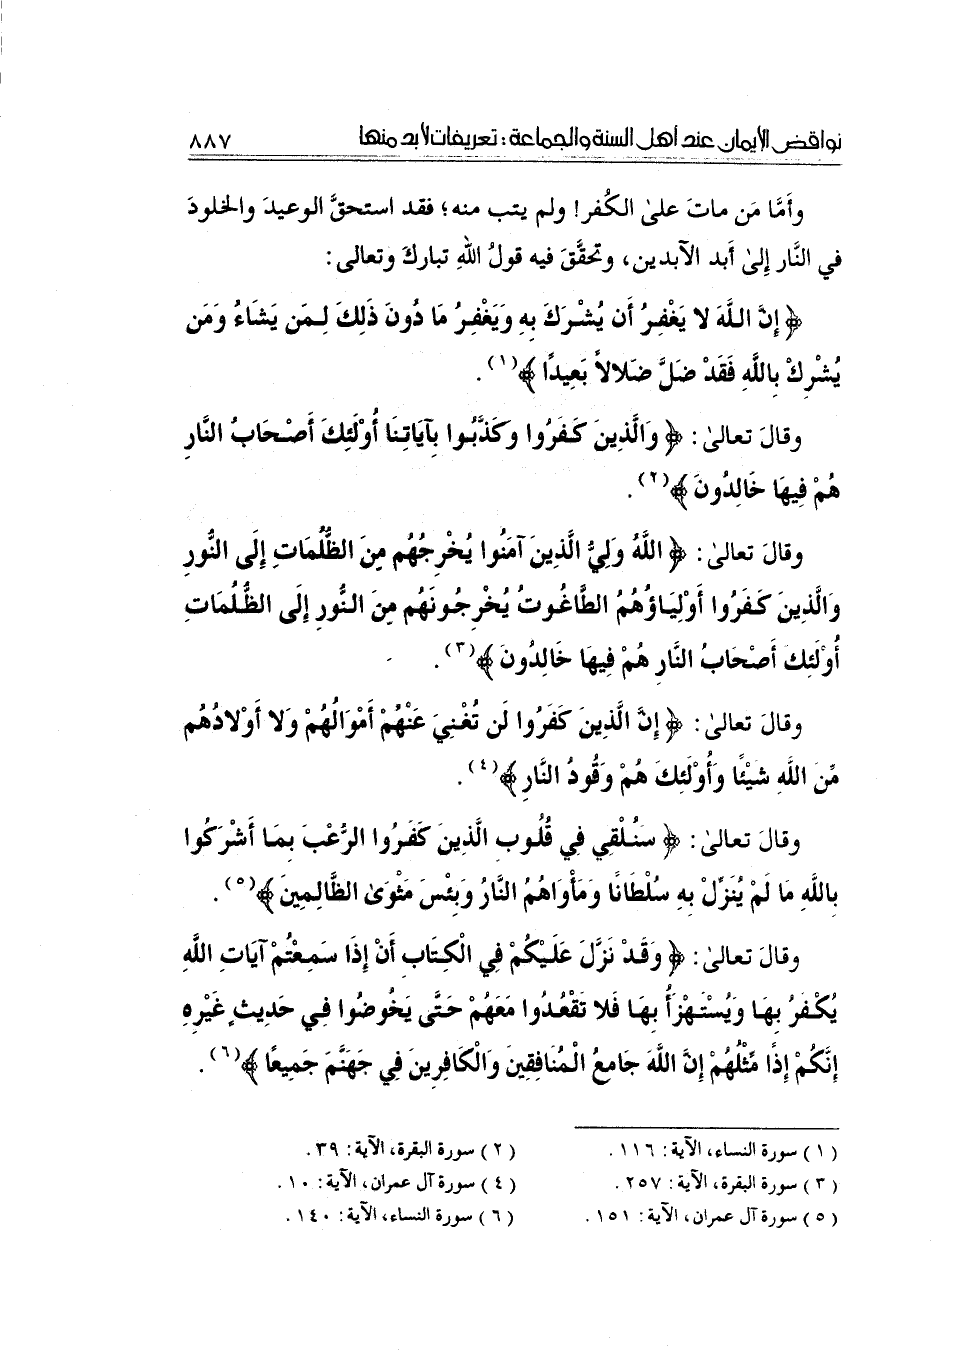 نواقض الإيمان عند أهل السنة والجماعة : تعريفات لابد منها ٨٨٧
وأمَّا مَن ماتَ علىٰ الكُفر! ولم يتب منه؛ فقد استحقَّ الوعيدَ والخلودَ
في النَّار إلىٰ أبد الآبدين، وتحقَّقَ فيه قولُ اللهِ تباركَ وتعالى:
﴿ إِنَّ اللَّهَ لا يَغْفِرُ أَن يُشْرَكَ بِهِ وَيَغْفِرُ مَا دُونَ ذَلِكَ لِمَن يَشَاءُ وَمَن
يُشْرِكْ بِاللَّهِ فَقَدْ ضَلَّ ضَلالاً بَعِيدًا ﴾(١).
وقالَ تعالىٰ: ﴿ وَالَّذِينَ كَفَرُوا وَكَذَّبُوا بِآيَاتِنَا أُوْلَئِكَ أَصْحَابُ النَّارِ
هُمْ فِيهَا خَالِدُونَ ﴾(٢).
وقالَ تعالىٰ: ﴿ اللَّهُ وَلِيُّ الَّذِينَ آمَنُوا يُخْرِجُهُم مِنَ الظُّلُمَاتِ إِلَى النُّورِ
وَالَّذِينَ كَفَرُوا أَوْلِيَاؤُهُمُ الطَّاغُوتُ يُخْرِجُونَهُم مِنَ النُّورِ إِلَى الظُّلُمَاتِ
أُوْلَئِكَ أَصْحَابُ النَّارِ هُمْ فِيهَا خَالِدُونَ ﴾(٣).
وقالَ تعالىٰ: ﴿ إِنَّ الَّذِينَ كَفَرُوا لَن تُغْنِيَ عَنْهُمْ أَمْوَالُهُمْ وَلا أَوْلادُهُم
مِّنَ اللَّهِ شَيْئًا وَأُوْلَئِكَ هُمْ وَقُودُ النَّارِ ﴾(٤).
وقالَ تعالىٰ: ﴿ سَنُلْقِي فِي قُلُوبِ الَّذِينَ كَفَرُوا الرُّعْبَ بِمَا أَشْرَكُوا
بِاللَّهِ مَا لَمْ يُنَزِّلْ بِهِ سُلْطَانًا وَمَأْوَاهُمُ النَّارُ وَبِئْسَ مَثْوَىٰ الظَّالِمِينَ ﴾(٥).
وقالَ تعالىٰ: ﴿ وَقَدْ نَزَّلَ عَلَيْكُمْ فِي الْكِتَابِ أَنْ إِذَا سَمِعْتُمْ آيَاتِ اللَّهِ
يُكْفَرُ بِهَا وَيُسْتَهْزَأُ بِهَا فَلا تَقْعُدُوا مَعَهُمْ حَتَّى يَخُوضُوا فِي حَدِيثٍ غَيْرِهِ
إِنَّكُمْ إِذًا مِّثْلُهُمْ إِنَّ اللَّهَ جَامِعُ الْمُنَافِقِينَ وَالْكَافِرِينَ فِي جَهَنَّمَ جَمِيعًا ﴾(٦).
(١) سورة النساء، الآية: ١١٦. (٢) سورة البقرة، الآية: ٣٩.
(٣) سورة البقرة، الآية: ٢٥٧. (٤) سورة آل عمران، الآية: ١٠.
(٥) سورة آل عمران، الآية: ١٥١. (٦) سورة النساء، الآية: ١٤٠.